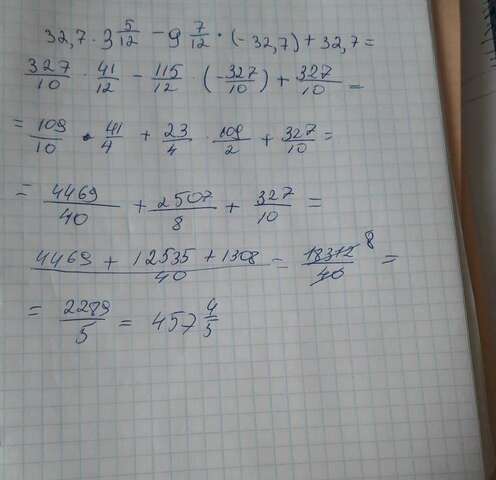 32,7 · 3 5/12 − 9 7/12 · (− 32,7) + 32,7 =
327/10 · 41/12 − 115/12 · (−327/10) + 327/10 =
= 109/10 · 41/4 + 23/4 · 109/2 + 327/10 =
= 4469/40 + 2507/8 + 327/10 =
4469 + 12535 + 1308/40 = 18312/40 8 =
= 2289/5 = 457 4/5